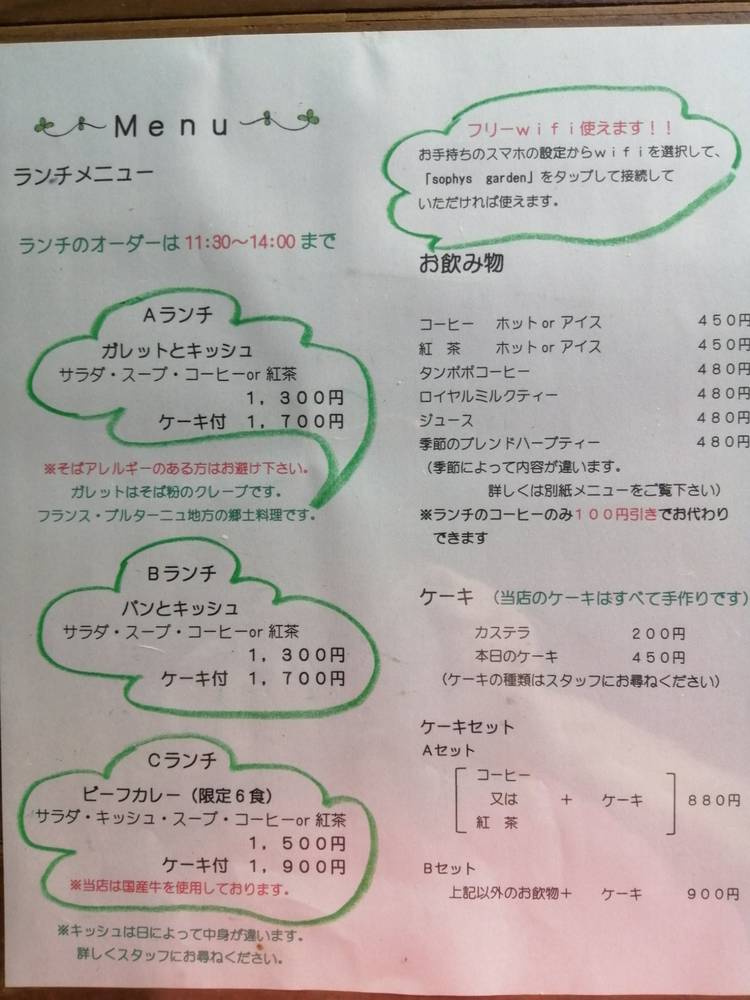 Menu
ランチメニュー
ランチのオーダーは 11:30～14:00 まで
Aランチ
ガレットとキッシュ
サラダ・スープ・コーヒーor 紅茶
1，300円
ケーキ付　1，700円
※そばアレルギーのある方はお避け下さい。
ガレットはそば粉のクレープです。
フランス・ブルターニュ地方の郷土料理です。
Bランチ
パンとキッシュ
サラダ・スープ・コーヒーor 紅茶
1，300円
ケーキ付　1，700円
Cランチ
ビーフカレー（限定６食）
サラダ・キッシュ・スープ・コーヒーor 紅茶
1，500円
ケーキ付　1，900円
※当店は国産牛を使用しております。
※キッシュは日によって中身が違います。
詳しくスタッフにお尋ねください。
フリーｗｉｆｉ使えます！！
お手持ちのスマホの設定からｗｉｆｉを選択して、
「sophys garden」をタップして接続して
いただければ使えます。
お飲み物
コーヒー　ホット or アイス　４５０円
紅　茶　ホット or アイス　４５０円
タンポポコーヒー　４８０円
ロイヤルミルクティー　４８０円
ジュース　４８０円
季節のブレンドハーブティー　４８０円
（季節によって内容が違います。
詳しくは別紙メニューをご覧下さい）
※ランチのコーヒーのみ１００円引きでお代わり
できます
ケーキ　（当店のケーキはすべて手作りです）
カステラ　２００円
本日のケーキ　４５０円
（ケーキの種類はスタッフにお尋ねください）
ケーキセット
Aセット
コーヒー
又は　＋　ケーキ　８８０円
紅　茶
Bセット
上記以外のお飲物＋　ケーキ　９００円